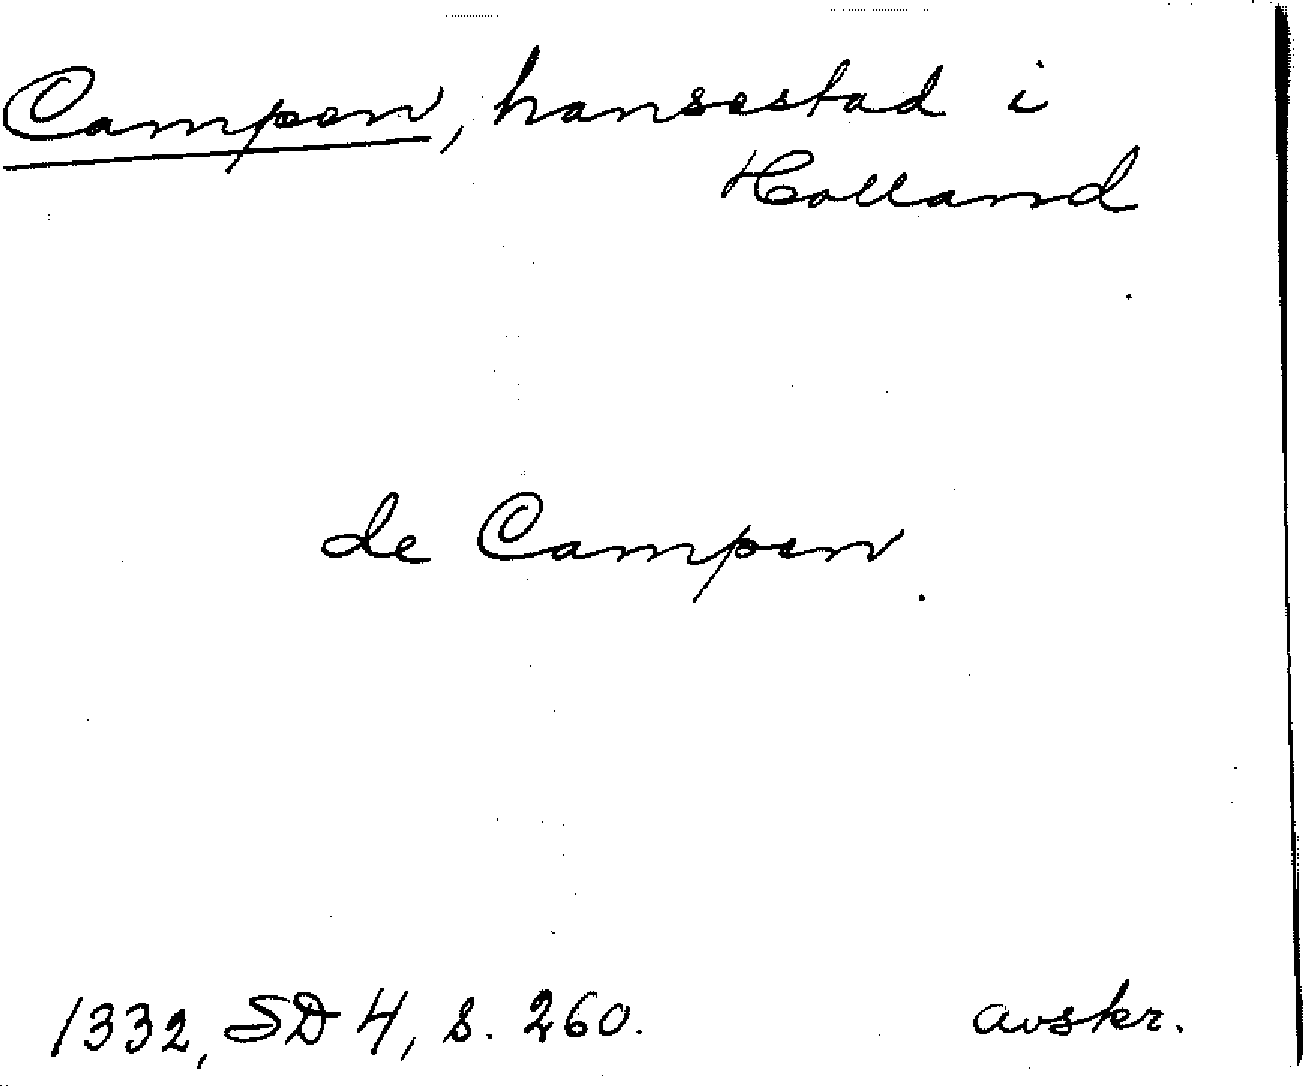 Campen, hansestad i
Holland
de Campen
1332, SD 4, s. 260. avskr.